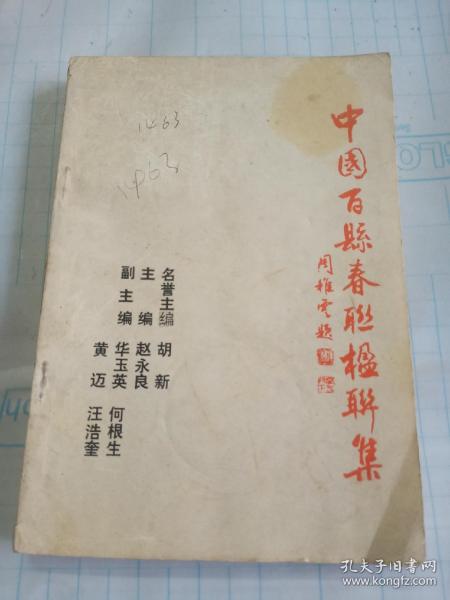 中國百縣春聯楹聯集
周雅雯題
名誉主编 胡新
主编 赵永良
副主编 华玉英 何根生
黄迈 汪浩奎
1463
1463
孔夫子旧书网
www.kongfz.com